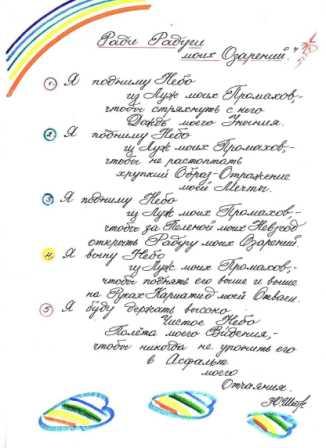 Ради Радуги
моих Озарений.
1 Я подниму Небо
из Луж моих Промахов,-
чтобы стряхнуть с него
Дождь моего Уныния.
2 Я подниму Небо
из Луж моих Промахов,-
чтобы не растоптать
хрупкий Образ-Отражение
моей Мечты.
3 Я подниму Небо
из Луж моих Промахов,-
чтобы за Пеленой моих Невзгод
открыть Радугу моих Озарений.
4 Я выну Небо
из Луж моих Промахов,-
чтобы поднять его выше и выше
на Руках Кариатид моей Отваги.
5 Я буду держать высоко
Чистое Небо
Полёта моего Вѝдения,-
чтобы никогда не уронить его
в Асфальт
моего
Отчаяния.